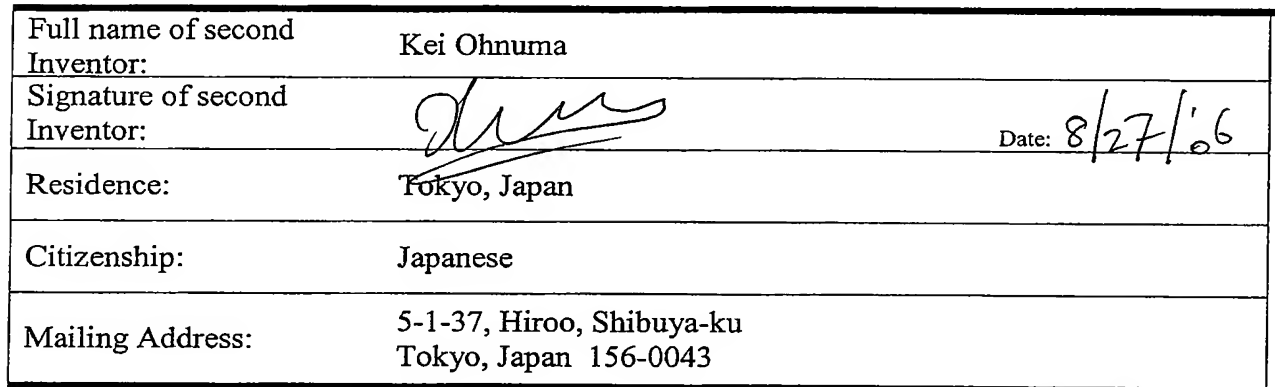 Full name of second
Inventor:
Kei Ohnuma
Signature of second
Inventor:
Date: 8/27/'06
Residence:
Tokyo, Japan
Citizenship:
Japanese
Mailing Address:
5-1-37, Hiroo, Shibuya-ku
Tokyo, Japan 156-0043